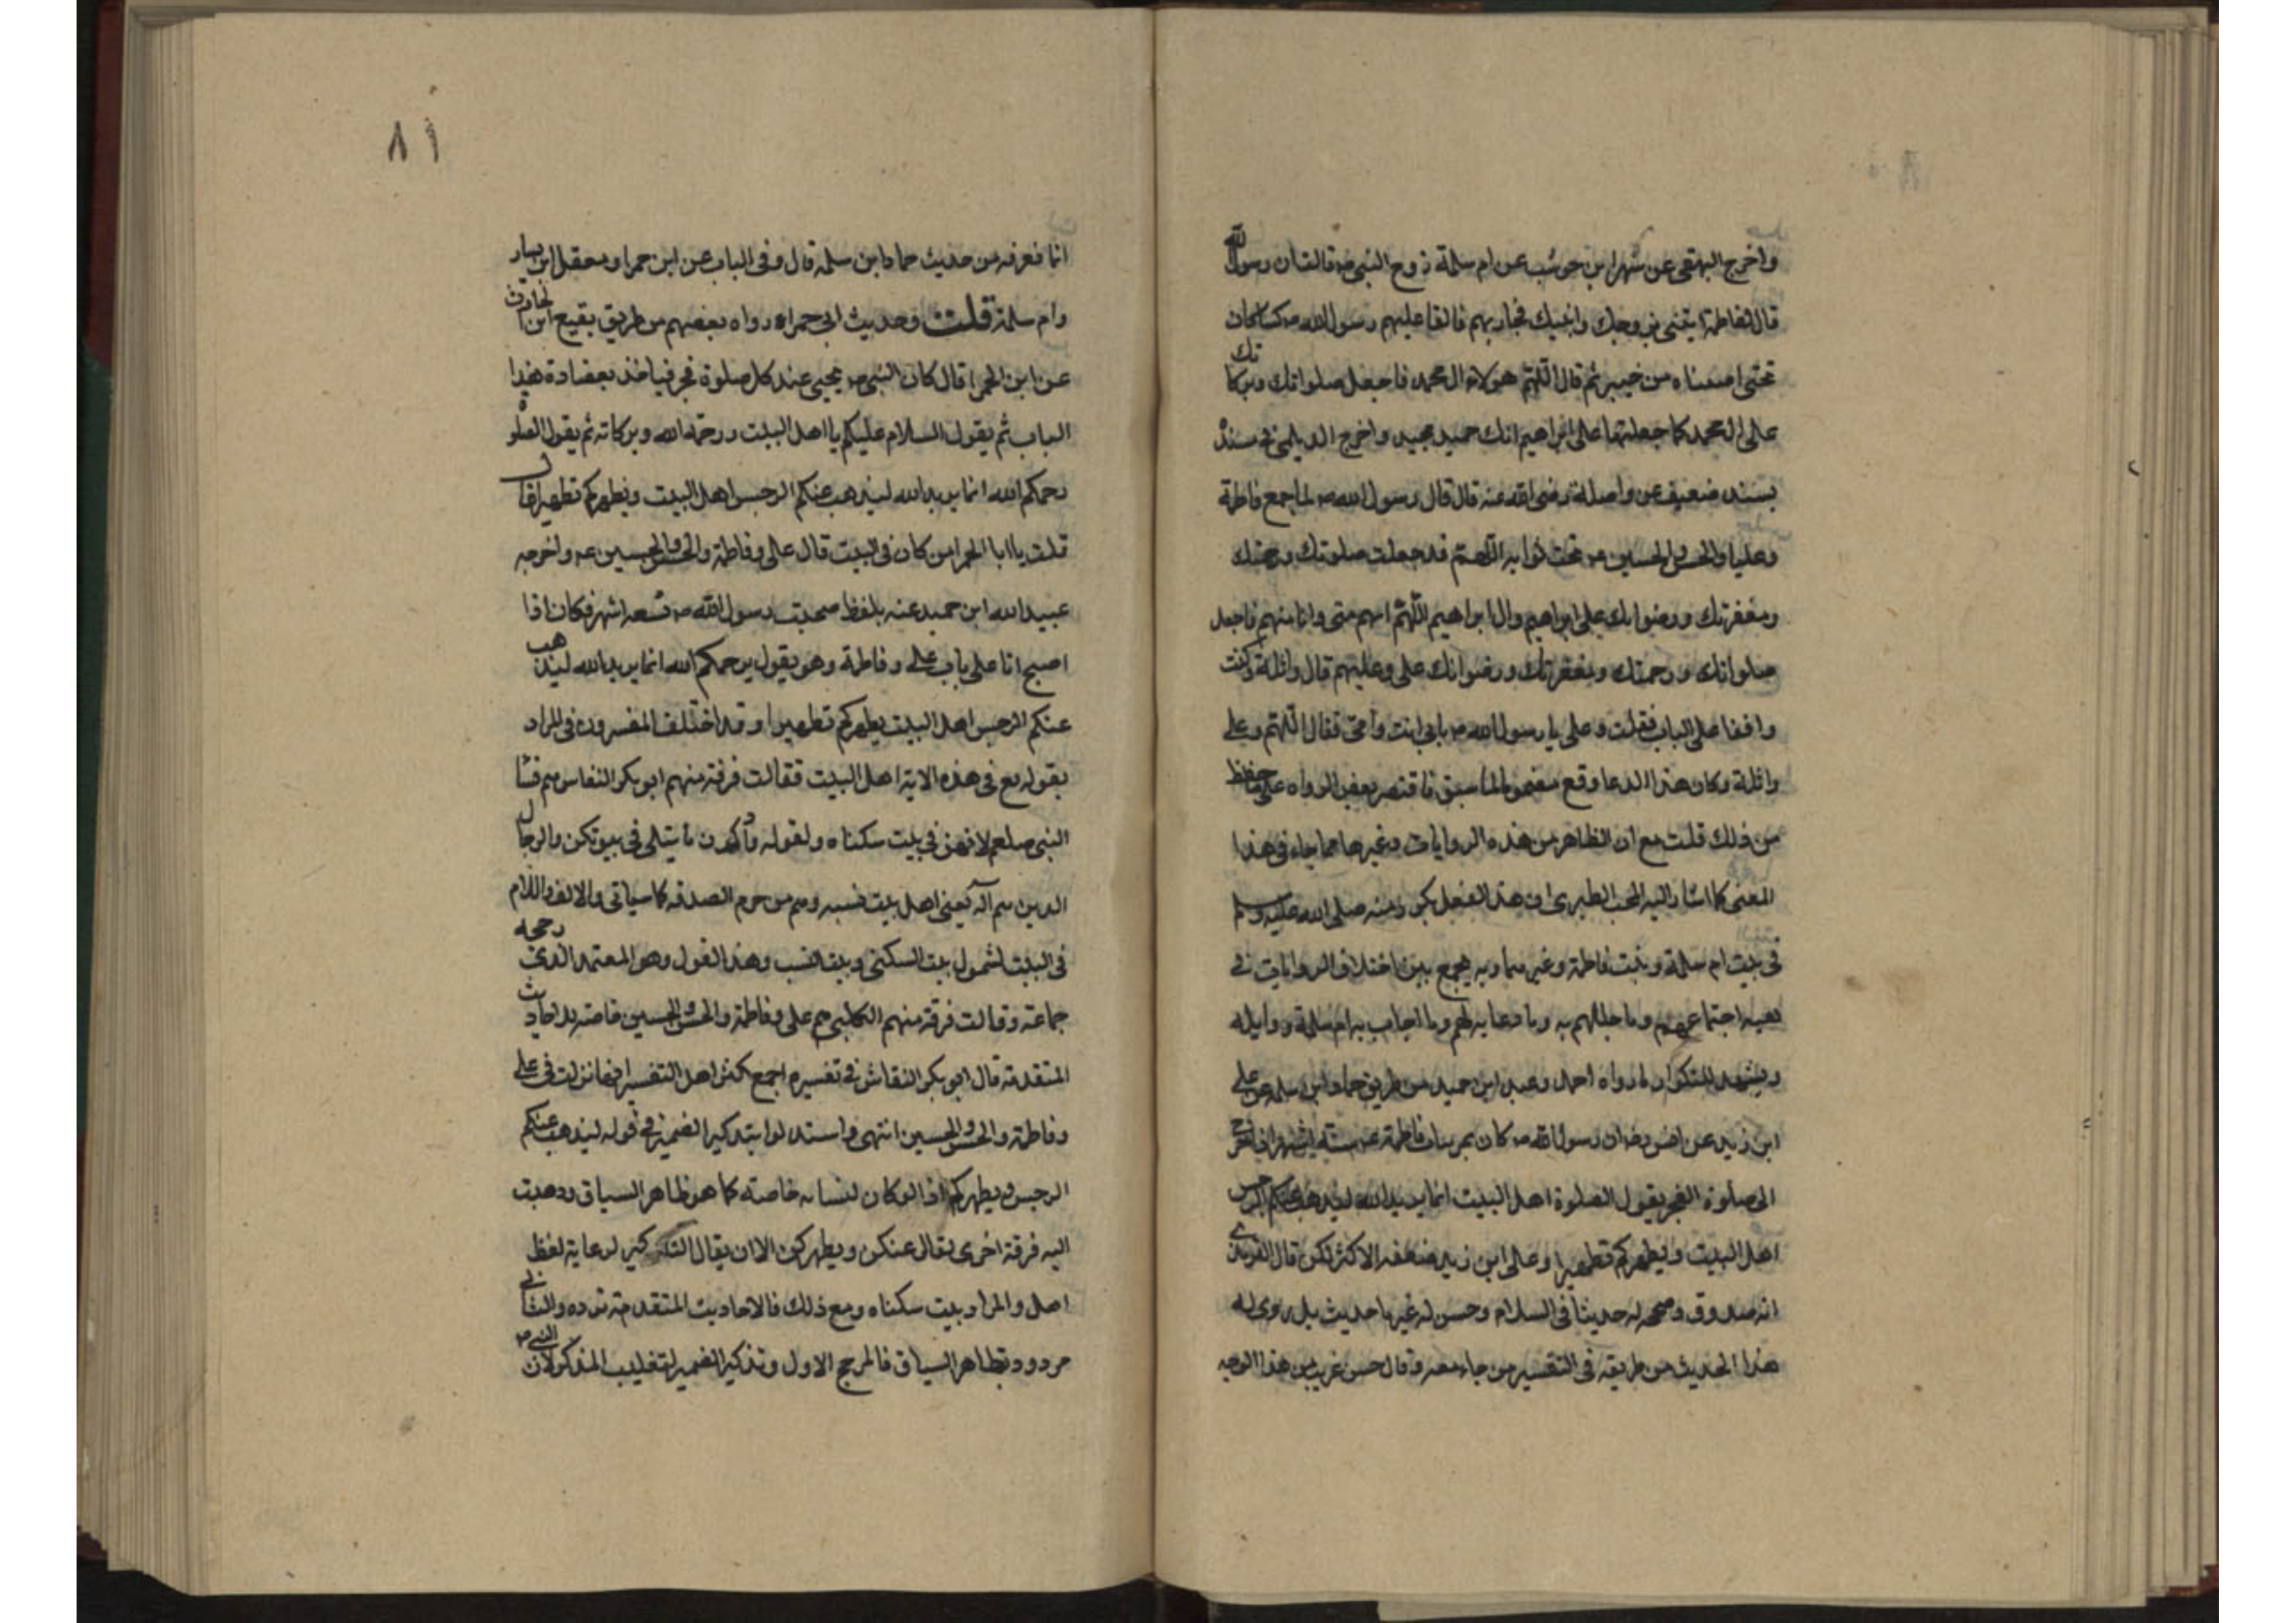 واخرج البهقى عن شهر ابن حوشب عن ام سلمة زوج النبى ص قالت ان رسول الله
قال لفاطمة ايتنى بزوجك وابنيك فجاءبهم فالقا عليهم رسول الله ص كساء كان
تحتى اصبناه من خيبر ثم قال اللهم هولاء ال محمد فاجعل صلواتك وبركاتك
على ال محمد كما جعلتها على ابراهيم انك حميد مجيد واخرج الديلمى فى مسنده
بسند ضعيف عن واصلة رضى الله عنه قال قال رسول الله ص لما جمع فاطمة
وعليا والحسن والحسين ع تحت ثوابه اللهم قد جعلت صلوتك ورحمتك
ومغفرتك ورضوانك على ابراهيم وال ابراهيم اللهم انهم منى وانا منهم فاجعل
صلواتك ورحمتك ومغفرتك ورضوانك على وعليهم قال واثلة وكنت
واقفا على الباب فقلت وعلى يا رسول الله ص بابى انت وامى فقال اللهم وعلى
واثلة وكان هذا الدعا وقع مضموما لما سبق فاقتصر بعض الرواه على ما حفظ
من ذلك قلت مع ان الظاهر من هذه الروايات وغيرها مما جاء فى هذا
المعنى كما اشار اليه المحب الطبرى ان هذا الفعل تكرر منه صلى الله عليه وسلم
فى بيت ام سلمة وبيت فاطمة وغيرهما وبه يجمع بين اختلاف الروايات فى
هيه اجتماعهم وما جللهم به وما دعا به لهم وما اجاب به ام سلمة وواثله
ويشهد للتكرار لما رواه احمد وعبد ابن حميد من طريق حماد ابن سلمه عن على
ابن زيد عن انس رضه ان رسول الله ص كان يمر ببات فاطمة ع سته اشهر اذا خرج
الى صلوة الفجر يقول الصلوة اهل البيت انما يريد الله ليذهب عنكم الرجس
اهل البيت ويطهركم تطهيرا وعلى ابن زيد ضعفه الاكثر لكن قال الترمذى
انه صدوق وصحح له حديثا فى السلام وحسن له غير ما حديث بل روى له
هذا الحديث من طريقه فى التفسير من جامعه وقال حسن غريب من هذا الوجه
٨١
انما نعرفه من حديث حماد ابن سلمه قال وفى الباب عن ابن حمرا ومعقل ابن يسار
وام سلمة قلت وحديث ابى حمراء رواه بعضهم من طريق بقيع ابن الحارث
عن ابن الحمرا قال كان النبى ص يجيى عند كل صلوة فجر فياخذ بعضادة هذا
الباب ثم يقول السلام عليكم يا اهل البيت ورحمة الله وبركاته ثم يقول الصلوة
رحمكم الله انما يريد الله ليذهب عنكم الرجس اهل البيت ويطهركم تطهيرا قال
قلت يا ابا الحمرا من كان فى البيت قال على وفاطمة والحسن والحسين ع واخرجه
عبيد الله ابن حميد عنه بلفظ صحبت رسول الله ص تسعه اشهر فكان اذا
اصبح اتا على باب على وفاطمة وهو يقول يرحمكم الله انما يريد الله ليذهب
عنكم الرجس اهل البيت يطهركم تطهيرا وقد اختلف المفسرون فى المراد
بقوله تع فى هذه الاية اهل البيت فقالت فرقة منهم ابو بكر النقاس هم نسا
النبى صلعم لانهن فى بيت سكناه ولقوله واذكرن ما يتلى فى بيوتكن والرجال
الدين هم آله يعنى اهل بيت نسبه وهم من حرم الصدقه كما سياتى والالف واللام
فى البيت لشمول بيت السكنى وبيت النسب وهذا القول وهو المعتمد الذى رجحه
جماعة وقالت فرقة منهم الكلبى هم على وفاطمة والحسن والحسين خاصة للاحاديث
المتقدمة قال ابو بكر النقاش فى تفسيره اجمع اكثر اهل التفسير انها نزلت فى على
وفاطمة والحسن والحسين انتهى واستدلوا بتذكير الضمير فى قوله ليذهب عنكم
الرجس ويطهركم اذ لو كان لنسائه خاصته كما هو ظاهر السياق وذهبت
اليه فرقة اخرى لقال عنكن ويطهركن الا ان يقال التذكير لرعاية لفظ
اهل والمراد بيت سكناه ومع ذلك فالاحاديث المتقدمة ترده والثانى
مردود بظاهر السياق فالمرجح الاول وتذكير الضمير لتغليب المذكر لان النبى ص